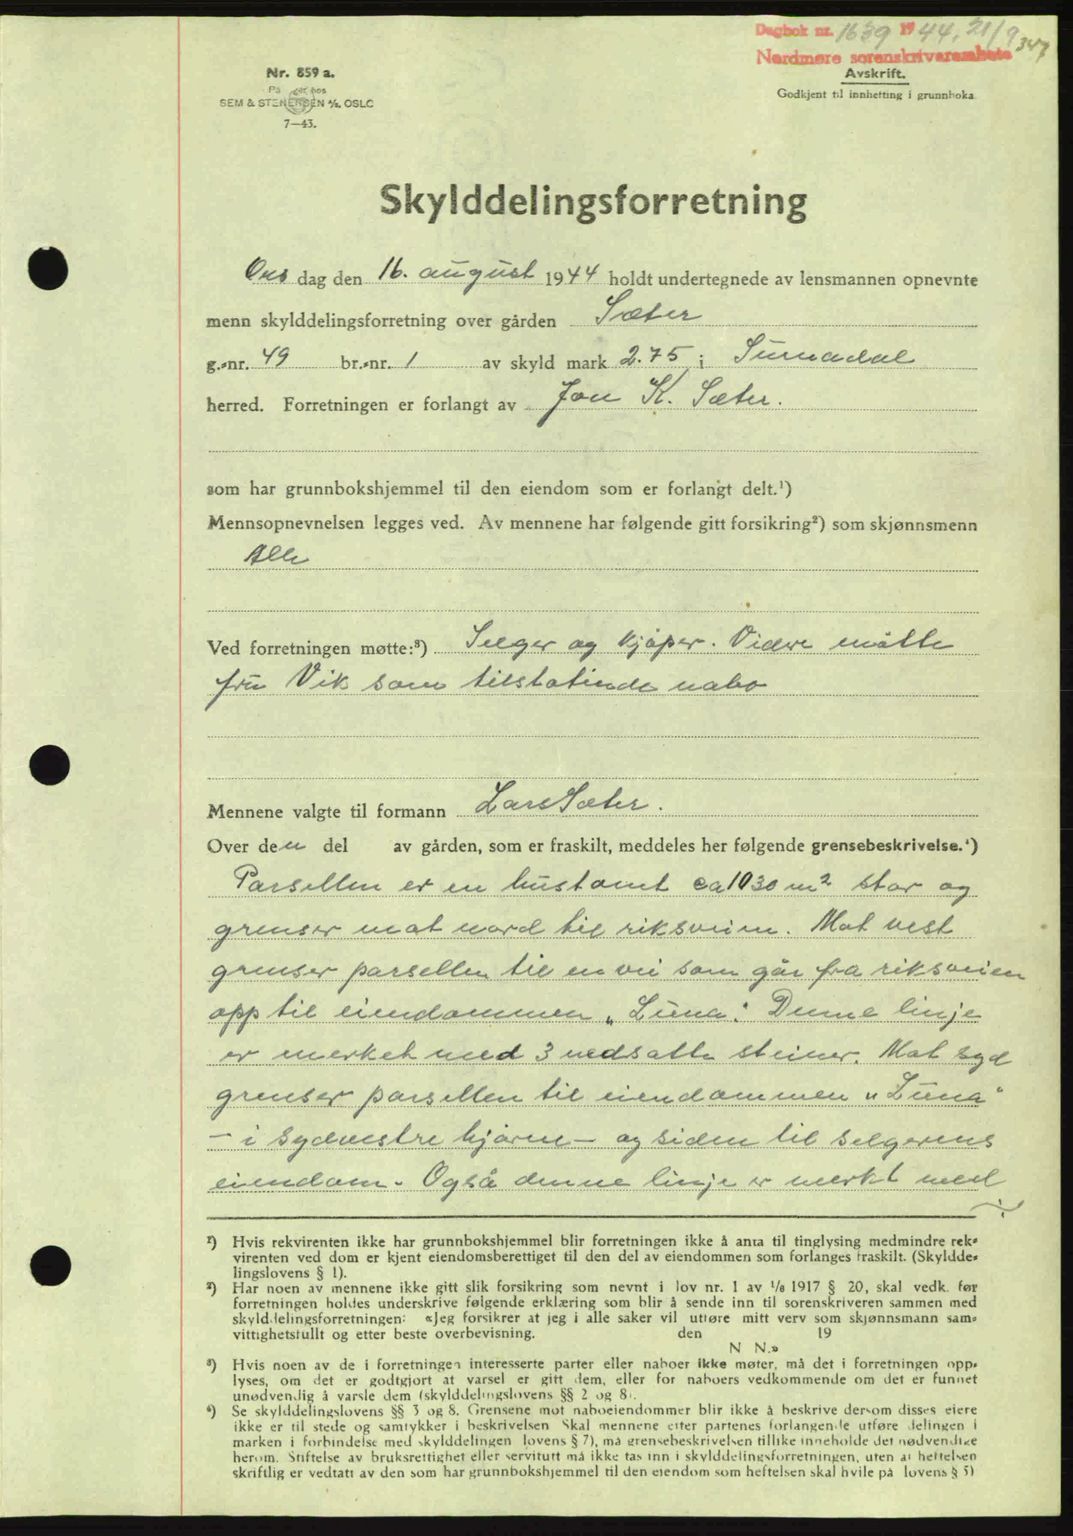 Dagbok nr. 1639 1944, 21/9
347
Nordmøre sorenskriverembete
Nr. 859 a.
SEM & STENERSEN A/S. OSLO
7—43.
Avskrift.
Godkjent til innhefting i grunnboka
Skylddelingsforretning
Ons dag den 16. august 1944 holdt undertegnede av lensmannen opnevnte
menn skylddelingsforretning over gården Sæter
g.-nr. 49 br.-nr. 1 av skyld mark 2.75 i Surnadal
herred. Forretningen er forlangt av Jon K. Sæter.
som har grunnbokshjemmel til den eiendom som er forlangt delt.¹)
Mennsopnevnelsen legges ved. Av mennene har følgende gitt forsikring²) som skjønnsmenn
Alle
Ved forretningen møtte:³) Selger og kjøper. Videre møtte
fru Vik som tilstøtende nabo
Mennene valgte til formann Lars Sæter.
Over den del av gården, som er fraskilt, meddeles her følgende grensebeskrivelse.⁴)
Parsellen er en hustomt ca 1030 m² stor og
grenser mot nord til riksveien. Mot vest
grenser parsellen til en vei som går fra riksveien
opp til eiendommen „Luna". Denne linje
er merket med 3 nedsatte steiner. Mot syd
grenser parsellen til eiendommen „Luna"
– i sydvestre hjørne – og siden til selgerens
eiendom. Også denne linje er merkt med
./.
¹) Hvis rekvirenten ikke har grunnbokshjemmel blir forretningen ikke å anta til tinglysing medmindre rek-
virenten ved dom er kjent eiendomsberettiget til den del av eiendommen som forlanges fraskilt. (Skyldde-
lingslovens § 1).
²) Har noen av mennene ikke gitt slik forsikring som nevnt i lov nr. 1 av 1/6 1917 § 20, skal vedk. før
forretningen holdes underskrive følgende erklæring som blir å sende inn til sorenskriveren sammen med
skylddelingsforretningen: «Jeg forsikrer at jeg i alle saker vil utføre mitt verv som skjønnsmann sam-
vittighetsfullt og etter beste overbevisning. den 19
N N.»
³) Hvis noen av de i forretningen interesserte parter eller naboer ikke møter, må det i forretningen opp-
lyses, om det er godtgjort at varsel er gitt dem, eller for naboers vedkommende om det er funnet
unødvendig å varsle dem (skylddelingslovens §§ 2 og 8).
⁴) Se skylddelingslovens §§ 3 og 8. Grensene mot naboeiendommer blir ikke å beskrive dersom disses eiere
ikke er til stede og samtykker i beskrivelsen Skal mennene etter partenes forlangende utføre delingen i
marken i forbindelse med skylddelingen lovens § 7), må grensebeskrivelsen tillike inneholde det nødvendige
herom. Stiftelse av bruksrettighet eller servitutt må ikke tas inn i skylddelingsforretningen, uten at heftelsen
skriftlig er vedtatt av den som har grunnbokshjemmel til den eiendom som heftelsen skal hvile på lovens § 5)